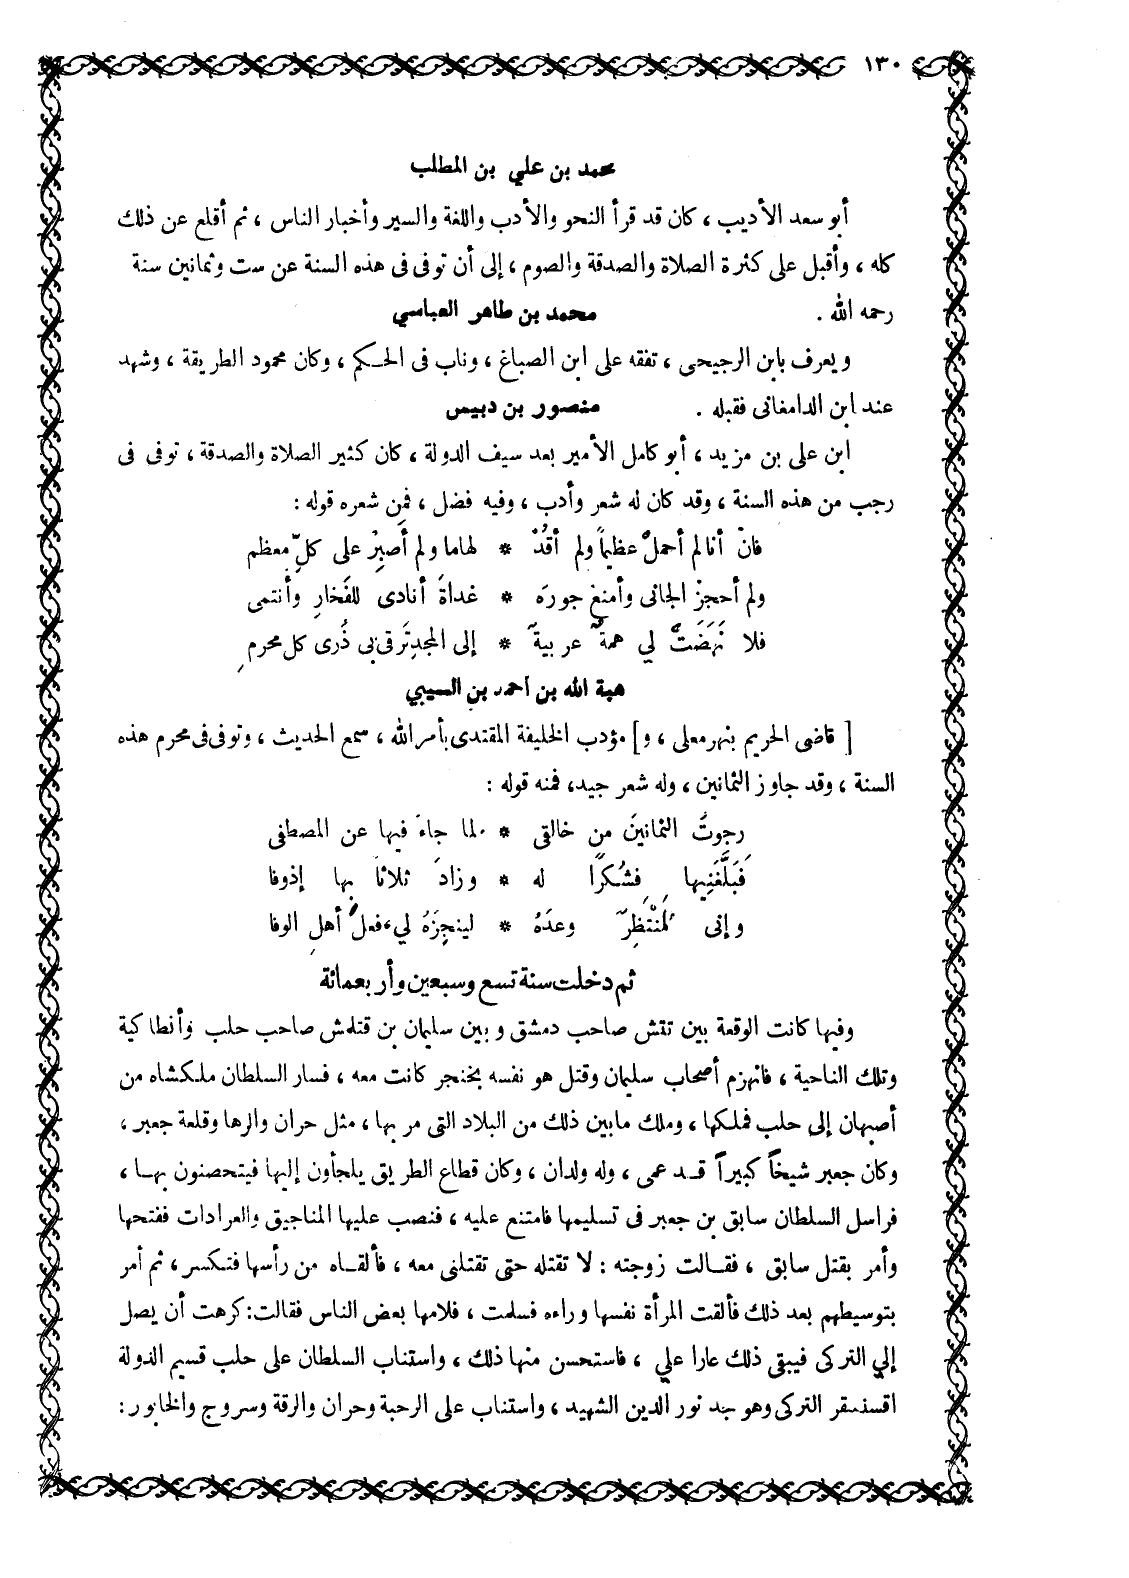 ١٣٠
محمد بن علي بن المطلب
أبو سعد الأديب ، كان قد قرأ النحو والأدب واللغة والسير وأخبار الناس ، ثم أقلع عن ذلك
كله ، وأقبل على كثرة الصلاة والصدقة والصوم ، إلى أن توفى فى هذه السنة عن ست وثمانين سنة
رحمه الله . محمد بن طاهر العباسي
ويعرف بابن الرجيحى ، تفقه على ابن الصباغ ، وناب فى الحكم ، وكان محمود الطريقة ، وشهد
عند ابن الدامغانى فقبله . منصور بن دبيس
ابن على بن مزيد ، أبو كامل الأمير بعد سيف الدولة ، كان كثير الصلاة والصدقة ، توفى فى
رجب من هذه السنة ، وقد كان له شعر وأدب ، وفيه فضل ، فمن شعره قوله :
فانْ أنا لم أحملْ عظيماً ولم أقُدْ * لهاما ولم أصبِرْ على كلِّ معظم
ولم أحجزْ الجانى وأمنعْ جورَه * غداةَ أنادى للفَخارِ وأنتمى
فلا نَهَضَتْ لي همةٌ عربيةٌ * إلى المجدِ تَرقى بى ذُرى كل محرمِ
هبة الله بن أحمد بن السيبي
[ قاضى الحريم بنهر معلى ، و] مؤدب الخليفة المقتدى بأمر الله ، سمع الحديث ، وتوفى فى محرم هذه
السنة ، وقد جاوز الثمانين ، وله شعر جيد، فمنه قوله :
رجوتُ الثمانينَ من خالقى * لما جاءَ فيها عن المصطفى
فَبَلَّغَنِيها فِشُكرًا له * وزادَ ثلاثاً بها إذوفا
وإنى لمُنْتَظِرٌ وعدَهُ * لينجِزَهُ لي، فعلَ أهلِ الوفا
ثم دخلت سنة تسع وسبعين وأربعمائة
وفيها كانت الوقعة بين تتش صاحب دمشق وبين سليمان بن قتلمش صاحب حلب وأنطاكية
وتلك الناحية ، فانهزم أصحاب سليمان وقتل هو نفسه بخنجر كانت معه ، فسار السلطان ملكشاه من
أصبهان إلى حلب فملكها ، وملك مابين ذلك من البلاد التى مر بها ، مثل حران والرها وقلعة جعبر ،
وكان جعبر شيخاً كبيراً قد عمى ، وله ولدان ، وكان قطاع الطريق يلجأون إليها فيتحصنون بها ،
فراسل السلطان سابق بن جعبر فى تسليمها فامتنع عليه ، فنصب عليها المناجيق والعرادات ففتحها
وأمر بقتل سابق ، فقالت زوجته : لا تقتله حتى تقتلنى معه ، فألقاه من رأسها فتكسر ، ثم أمر
بتوسيطهم بعد ذلك فألقت المرأة نفسها وراءه فسلمت ، فلامها بعض الناس فقالت: كرهت أن يصل
إلي التركى فيبقى ذلك عارا علي ، فاستحسن منها ذلك ، واستناب السلطان على حلب قسيم الدولة
اقسنقر التركى وهو جد نور الدين الشهيد ، واستناب على الرحبة وحران والرقة وسروج والخابور :